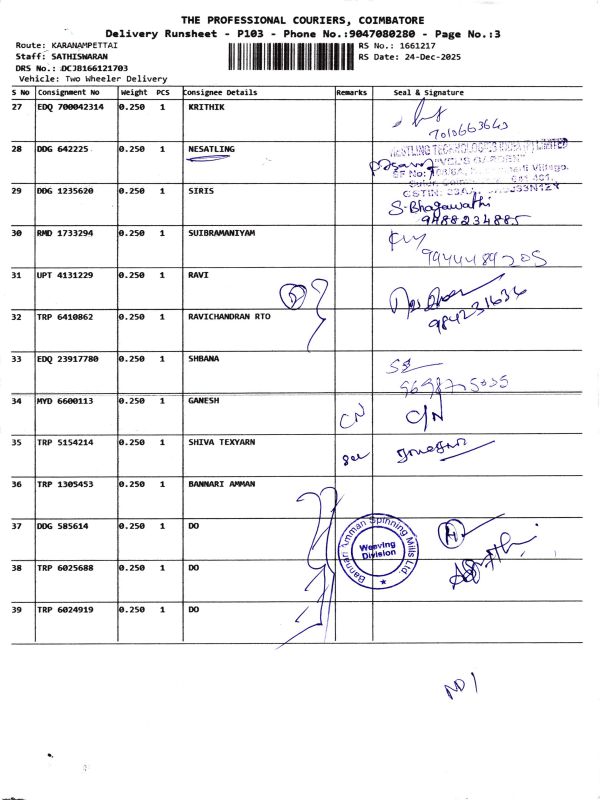 THE PROFESSIONAL COURIERS, COIMBATORE
Delivery Runsheet - P103 - Phone No.:9047080280 - Page No.:3
Route: KARANAMPETTAI
RS No.: 1661217
Staff: SATHISWARAN
RS Date: 24-Dec-2025
DRS No.: DCJB166121703
Vehicle: Two Wheeler Delivery
S No Consignment No Weight PCS Consignee Details Remarks Seal & Signature
27 EDQ 700042314 0.250 1 KRITHIK
7010663643
28 DDG 642225 0.250 1 NESATLING
29 DDG 1235620 0.250 1 SIRIS S-Bhagawathi
9488234885
30 RMD 1733294 0.250 1 SUIBRAMANIYAM
31 UPT 4131229 0.250 1 RAVI
984231636
32 TRP 6410862 0.250 1 RAVICHANDRAN RTO
33 EDQ 23917780 0.250 1 SHBANA
34 MYD 6600113 0.250 1 GANESH CN C/N
35 TRP 5154214 0.250 1 SHIVA TEXYARN
36 TRP 1305453 0.250 1 BANNARI AMMAN
37 DDG 585614 0.250 1 DO
Bannari Amman Spinning Mills Ltd
Weaving
Division
38 TRP 6025688 0.250 1 DO
39 TRP 6024919 0.250 1 DO